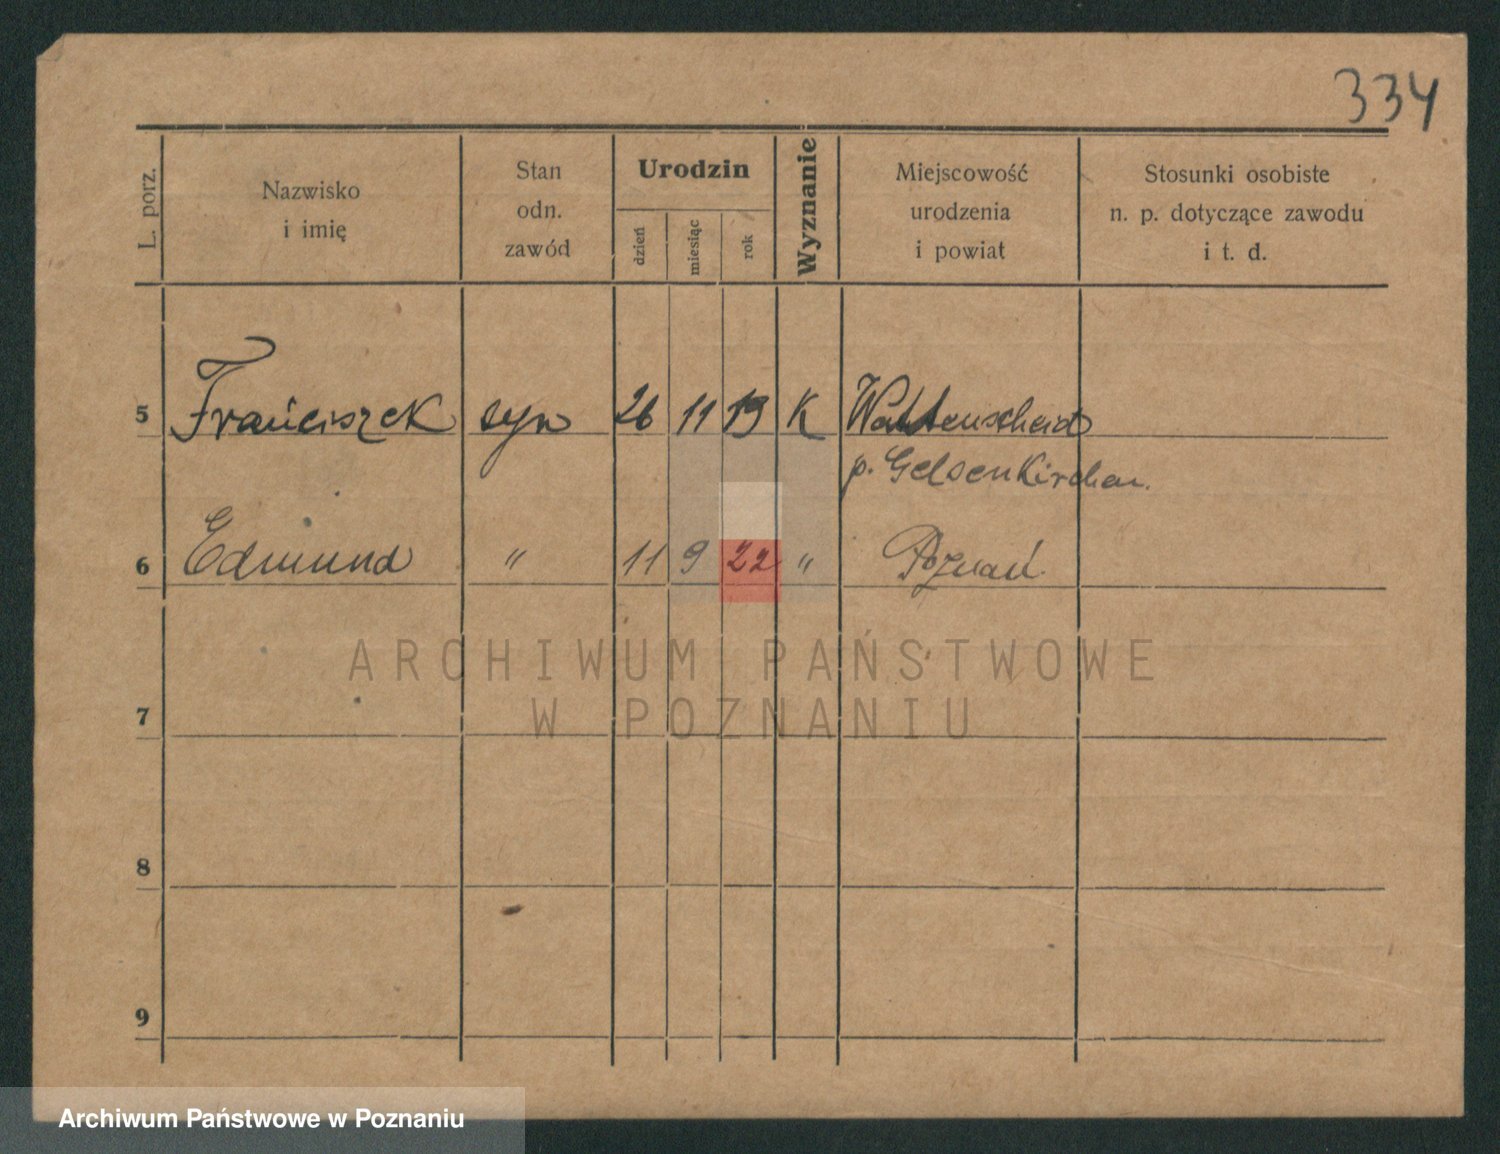 334
L. porz.
Nazwisko
i imię
Stan
odn.
zawód
Urodzin
dzień
miesiąc
rok
Wyznanie
Miejscowość
urodzenia
i powiat
Stosunki osobiste
n. p. dotyczące zawodu
i t. d.
5 Franciszek syn 26 11 19 K Wattenscheid
p. Gelsenkirchen.
6 Edmund " 11 9 22 " Poznań
ARCHIWUM PAŃSTWOWE
W POZNANIU
7
8
9
Archiwum Państwowe w Poznaniu